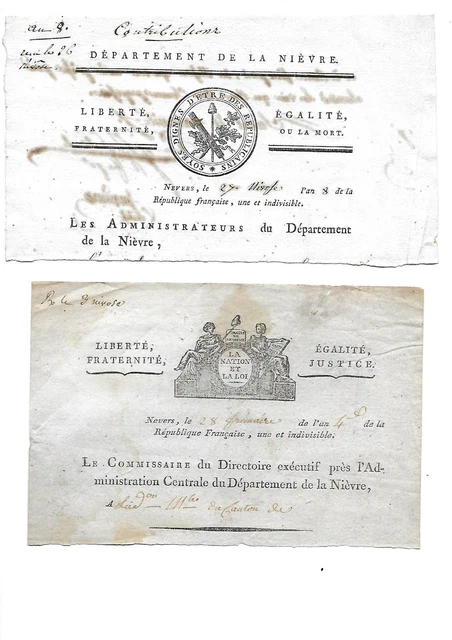 an 8.
Contributions
DÉPARTEMENT DE LA NIÈVRE.
LIBERTÉ,
FRATERNITÉ,
SOYES DIGNES D'ÊTRE DES RÉPUBLICAINS
ÉGALITÉ,
OU LA MORT.
NEVERS, le 27 Nivose l'an 8 de la
République française, une et indivisible.
LES ADMINISTRATEURS du Département
de la Nièvre,
LIBERTÉ,
FRATERNITÉ,
LA
NATION
ET
LA LOI
ÉGALITÉ,
JUSTICE.
Nevers, le 28 frimaire de l'an 4 de la
République Française, une et indivisible.
LE COMMISSAIRE du Directoire exécutif près l'Ad-
ministration Centrale du Département de la Nièvre,
A du Canton de